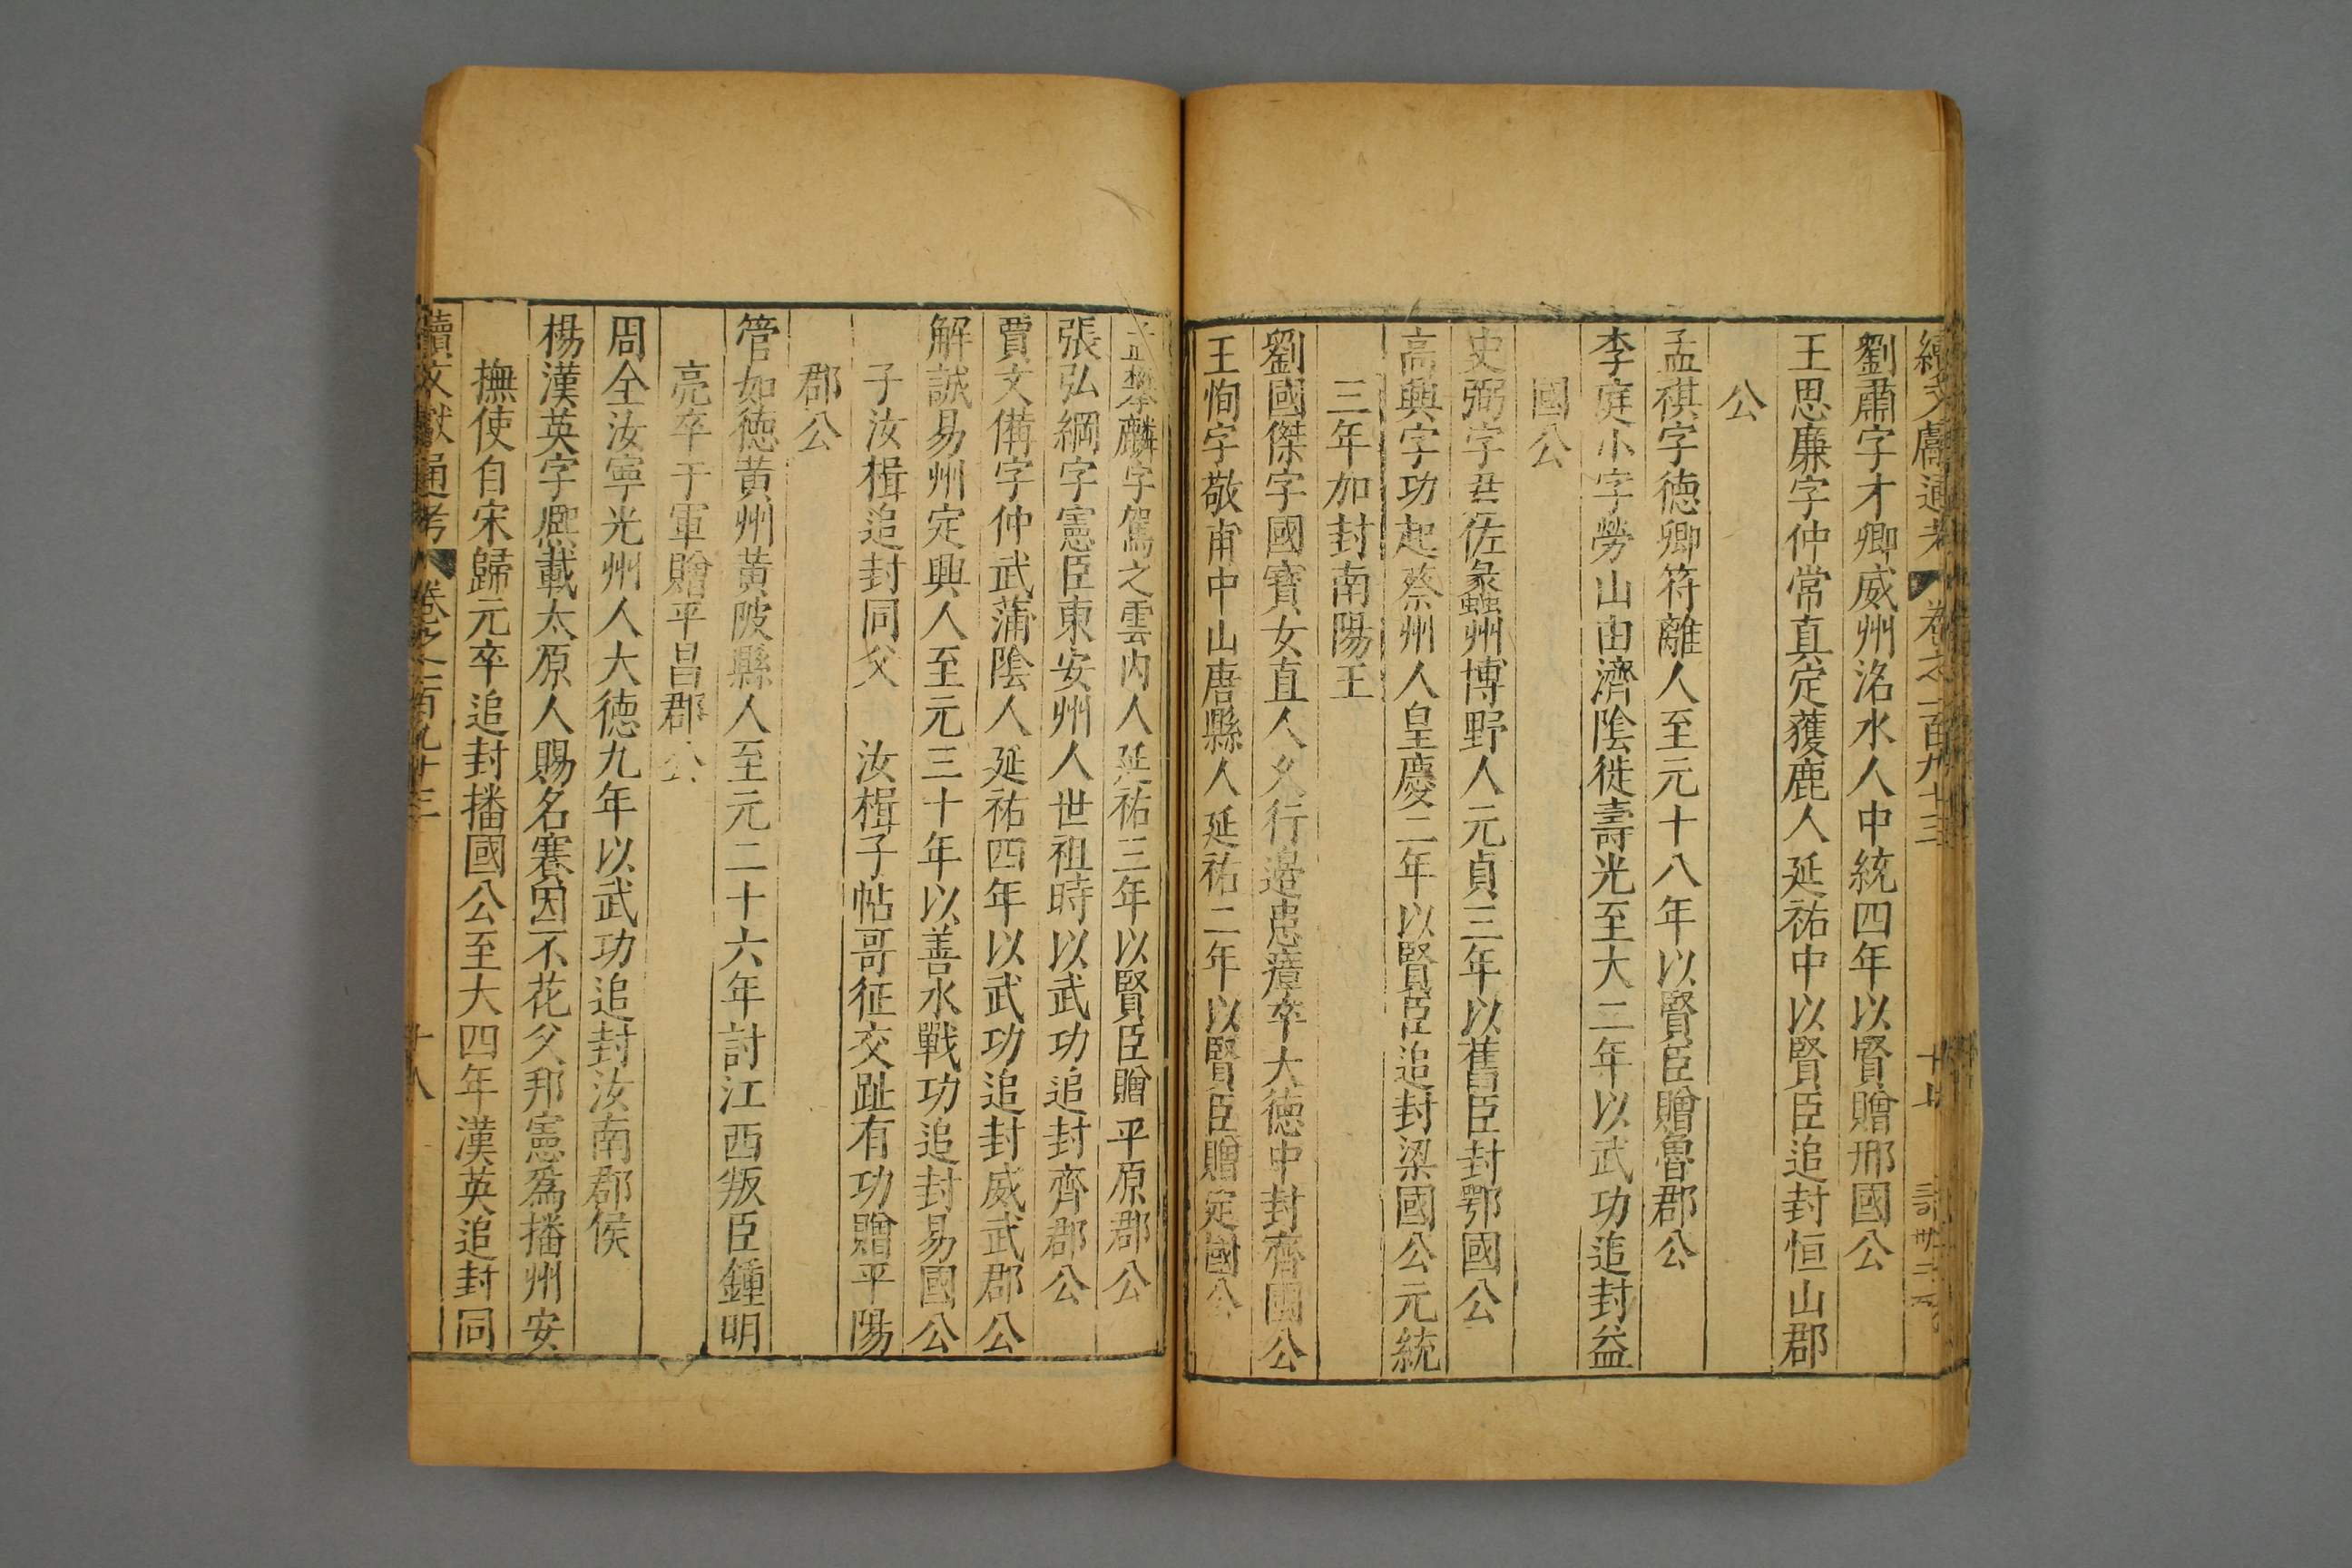 續文獻通考 卷之一百九十三 十七
劉肅字才卿威州洺水人中統四年以賢贈邢國公
王思廉字仲常真定獲鹿人延祐中以賢臣追封恒山郡
公
孟祺字德卿符離人至元十八年以賢臣贈魯郡公
李庭小字勞山由濟陰徙壽光至大二年以武功追封益
國公
史弼字君佐蠡州博野人元貞三年以舊臣封鄂國公
高興字功起蔡州人皇慶二年以賢臣追封梁國公元統
三年加封南陽王
劉國傑字國寶女直人久行邉患瘴卒大德中封齊國公
王恂字敬甫中山唐縣人延祐二年以賢臣贈定國公
麟字駕之雲内人延祐三年以賢臣贈平原郡公
張弘綱字憲臣東安州人世祖時以武功追封齊郡公
賈文備字仲武蒲陰人延祐四年以武功追封威武郡公
解誠易州定興人至元三十年以善水戰功追封易國公
子汝楫追封同父 汝楫子帖哥征交趾有功贈平陽
郡公
管如德黃州黃陂縣人至元二十六年討江西叛臣鍾明
亮卒于軍贈平昌郡公
周全汝寧光州人大德九年以武功追封汝南郡侯
楊漢英字熈載太原人賜名賽因不花父邦憲爲播州安
撫使自宋歸元卒追封播國公至大四年漢英追封同
續文獻通考 卷之一百九十三 十八